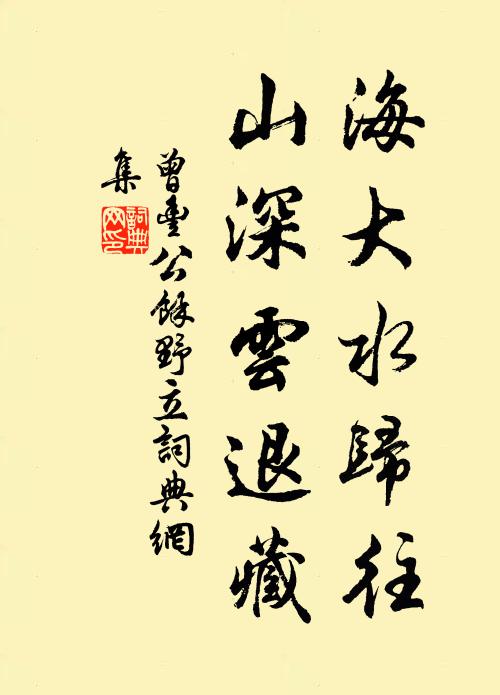 海大水歸往
山深雲退藏
曾豐公餘野立詞典網
集
詞典
网印